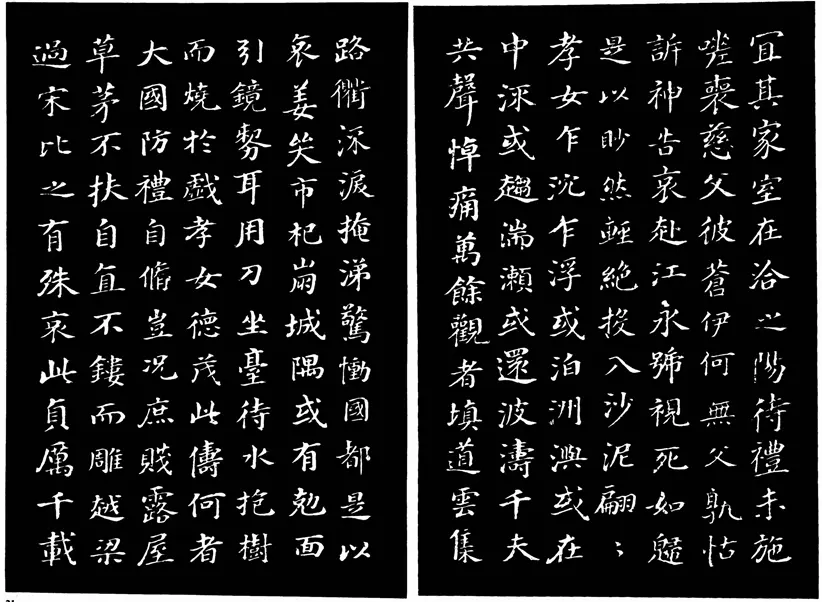 宜其家室在洽之陽待禮未施
嗟喪慈父彼蒼伊何無父孰怙
訴神告哀赴江永號視死如歸
是以眇然輕絶投入沙泥翩〻
孝女乍沉乍浮或泊洲嶼或在
中流或趨湍瀨或還波濤千夫
共聲悼痛萬餘觀者填道雲集
路衢流淚掩涕驚慟國都是以
哀姜哭市杞崩城隅或有剋面
引鏡剺耳用刀坐臺待水抱樹
而燒於戲孝女德茂此儔何者
大國防禮自脩豈况庶賤露屋
草茅不扶自直不鏤而雕越梁
過宋比之有殊哀此貞厲千載